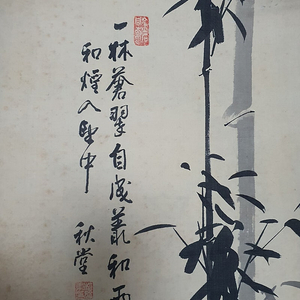 一林蒼翠自成叢和雨
和煙入画中
秋堂